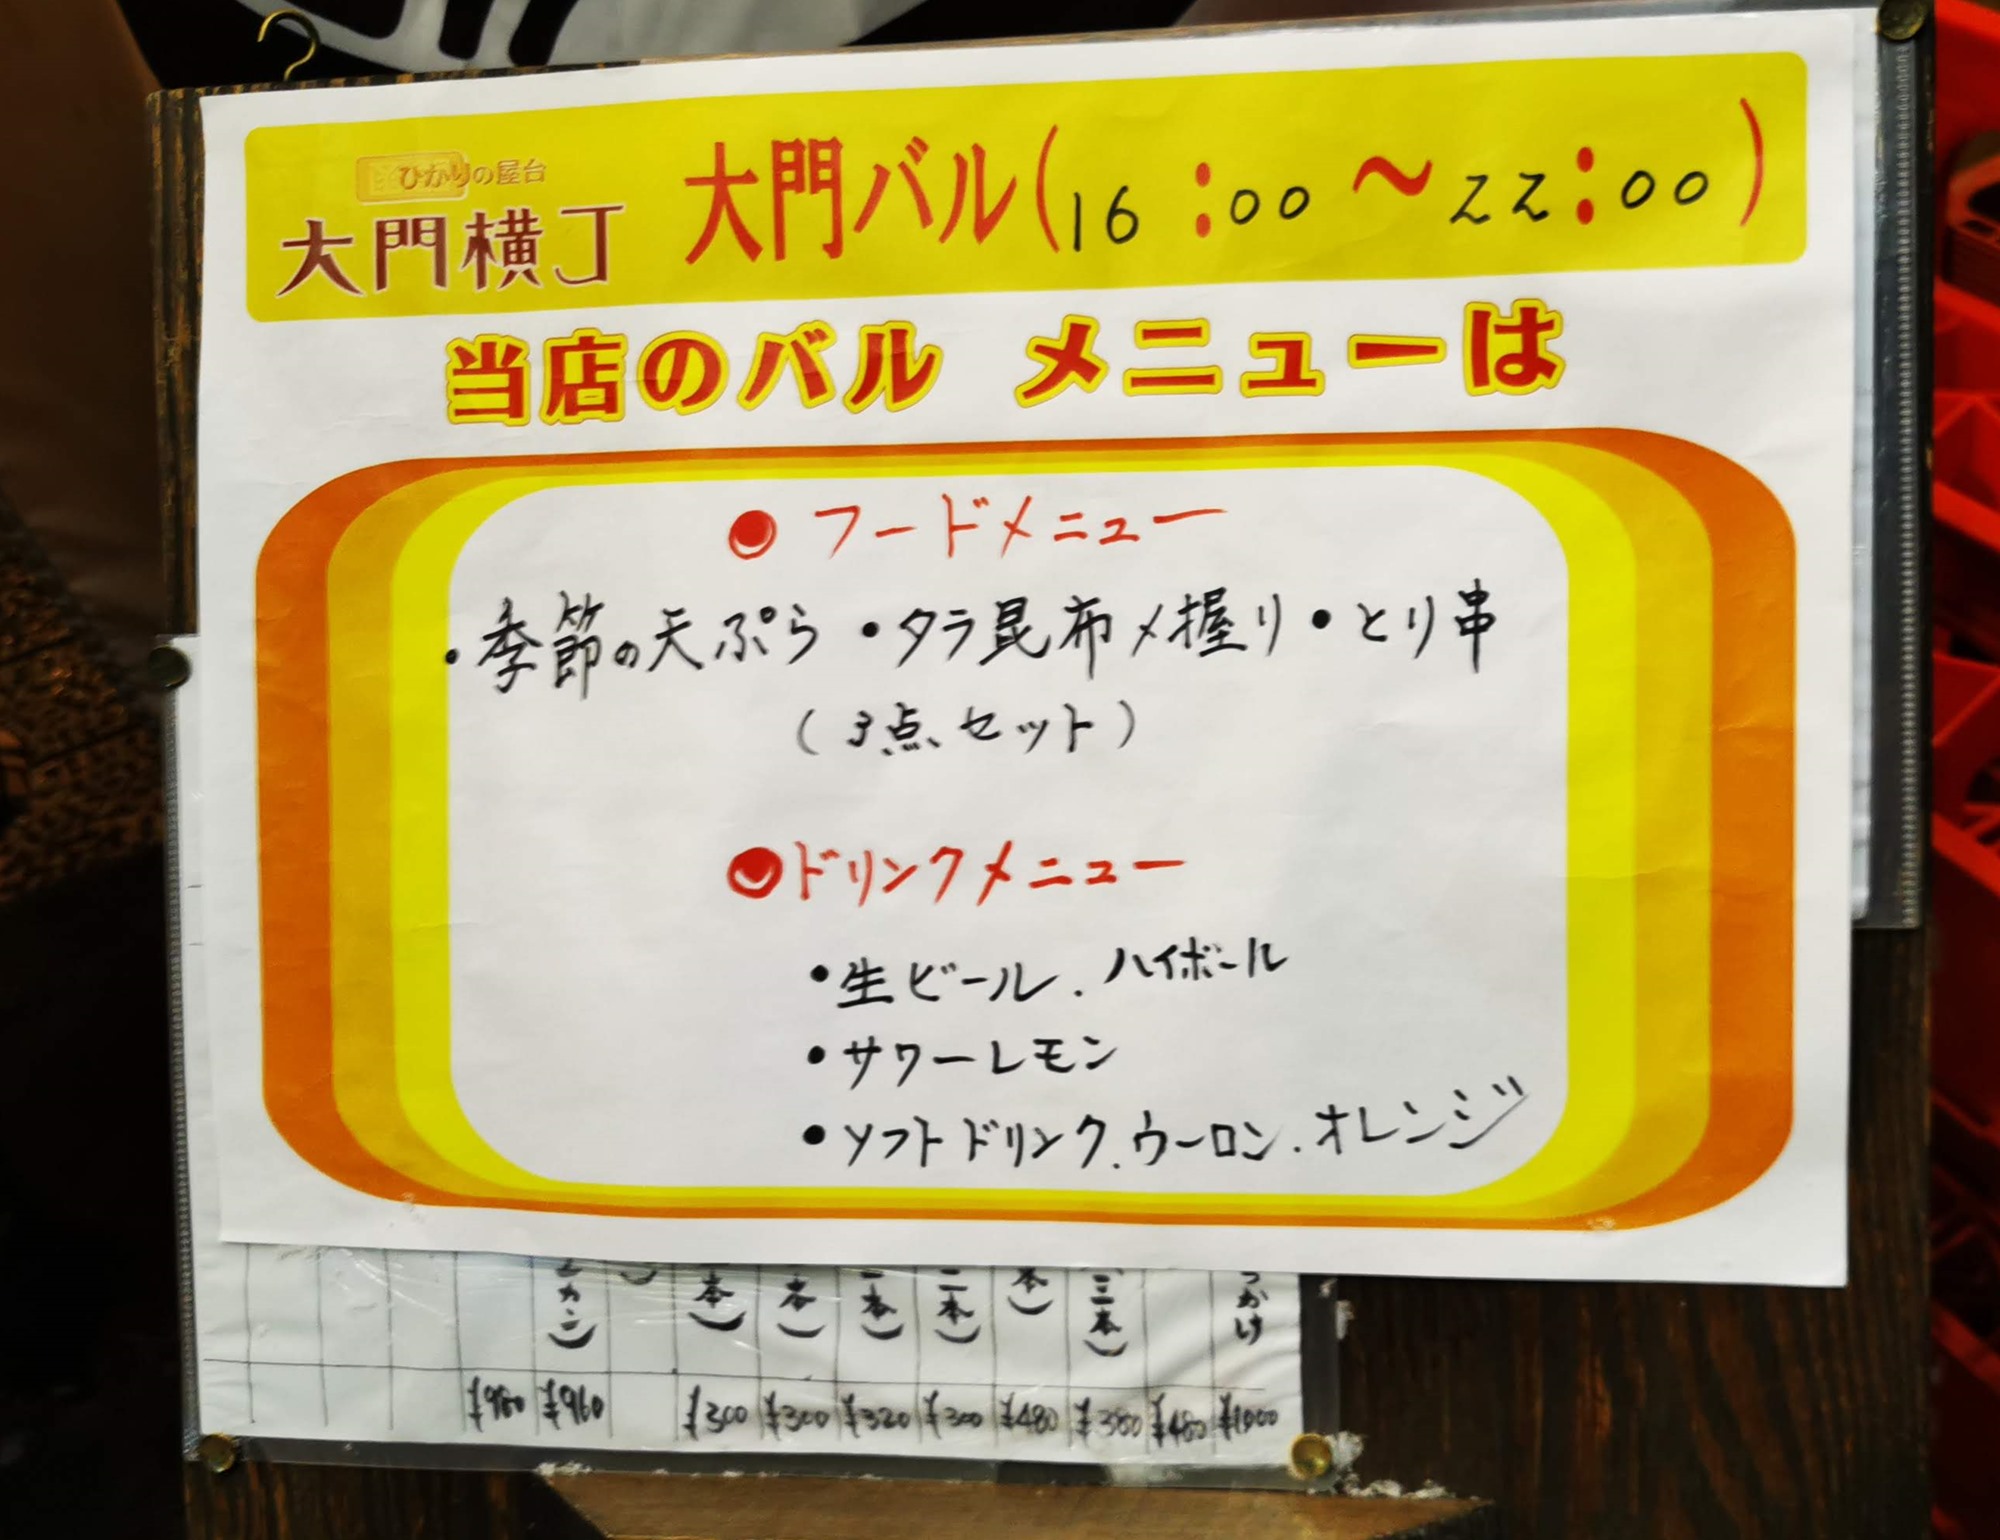 ひかりの屋台
大門横丁
大門バル(16:00～22:00)
当店のバル メニューは
● フードメニュー
・季節の天ぷら ・タラ昆布〆握り ・とり串
(3点セット)
●ドリンクメニュー
・生ビール.ハイボール
・サワーレモン
・ソフトドリンク.ウーロン.オレンジ
¥980 ¥960 ¥300 ¥300 ¥320 ¥300 ¥480 ¥380 ¥480 ¥1000